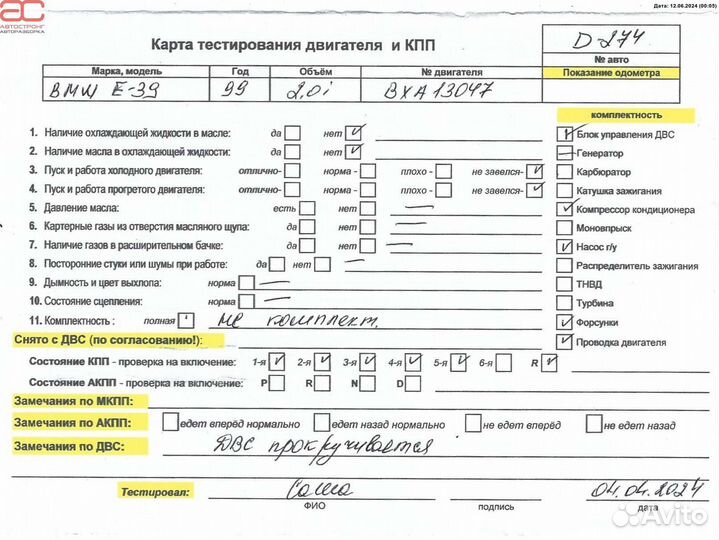 Дата: 12.06.2024 (00:05)
АС
АВТОСТРОНГ
АВТОРАЗБОРКА
Карта тестирования двигателя и КПП
D-274
№ авто
Марка, модель Год Объём № двигателя Показание одометра
BMW E-39 99 2.0i BXA13047
комплектность
1. Наличие охлаждающей жидкости в масле: да нет ✓ ✓ Блок управления ДВС
2. Наличие масла в охлаждающей жидкости: да нет ✓ — Генератор
3. Пуск и работа холодного двигателя: отлично- норма - плохо - не завелся- ✓ Карбюратор
4. Пуск и работа прогретого двигателя: отлично- норма - плохо - не завелся- ✓ Катушка зажигания
5. Давление масла: есть нет — ✓ Компрессор кондиционера
6. Картерные газы из отверстия масляного щупа: да нет — Моновпрыск
7. Наличие газов в расширительном бачке: да нет — ✓ Насос г/у
8. Посторонние стуки или шумы при работе: да нет — Распределитель зажигания
9. Дымность и цвет выхлопа: норма — ТНВД
10. Состояние сцепления: норма — Турбина
11. Комплектность : полная не комплект. ✓ Форсунки
Снято с ДВС (по согласованию!): ✓ Проводка двигателя
Состояние КПП - проверка на включение: 1-я ✓ 2-я ✓ 3-я ✓ 4-я ✓ 5-я ✓ 6-я R ✓
Состояние АКПП - проверка на включение: P R N D
Замечания по МКПП:
Замечания по АКПП: едет вперёд нормально едет назад нормально не едет вперёд не едет назад
Замечания по ДВС: ДВС прокручивается
Тестировал: Саша 04.04.2024
ФИО подпись дата
Avito